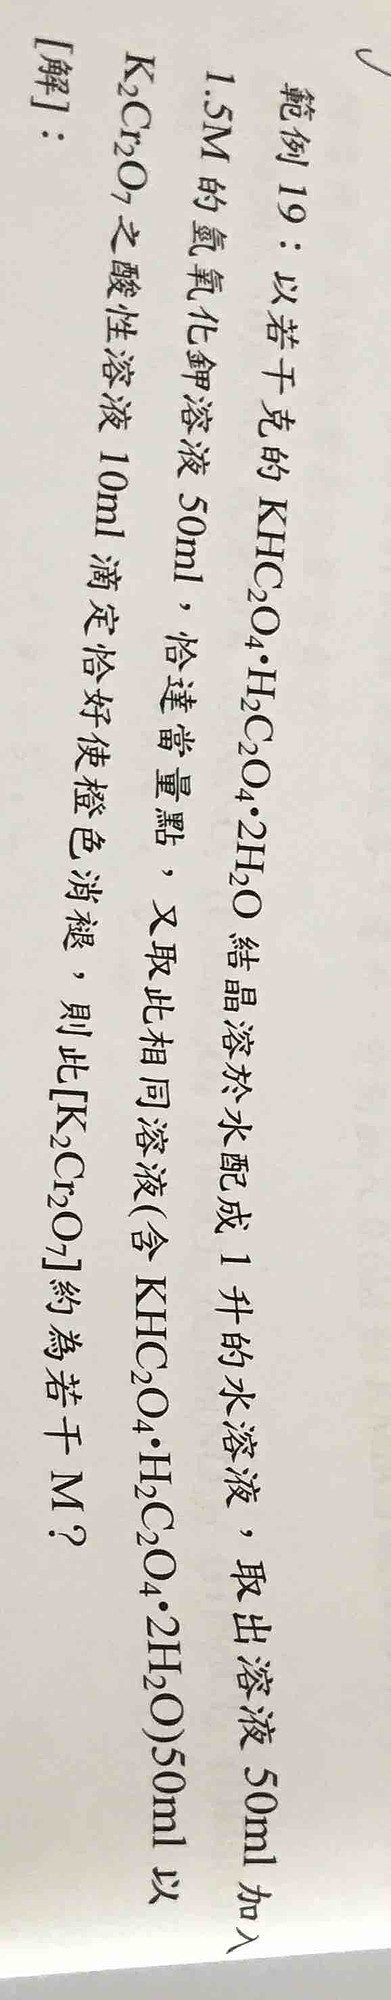 範例 19：以若干克的 KHC₂O₄•H₂C₂O₄•2H₂O 結晶溶於水配成 1 升的水溶液，取出溶液 50ml 加入
1.5M 的氫氧化鉀溶液 50ml，恰達當量點，又取此相同溶液(含 KHC₂O₄•H₂C₂O₄•2H₂O)50ml 以
K₂Cr₂O₇之酸性溶液 10ml 滴定恰好使橙色消褪，則此[K₂Cr₂O₇]約為若干 M？
[解]：